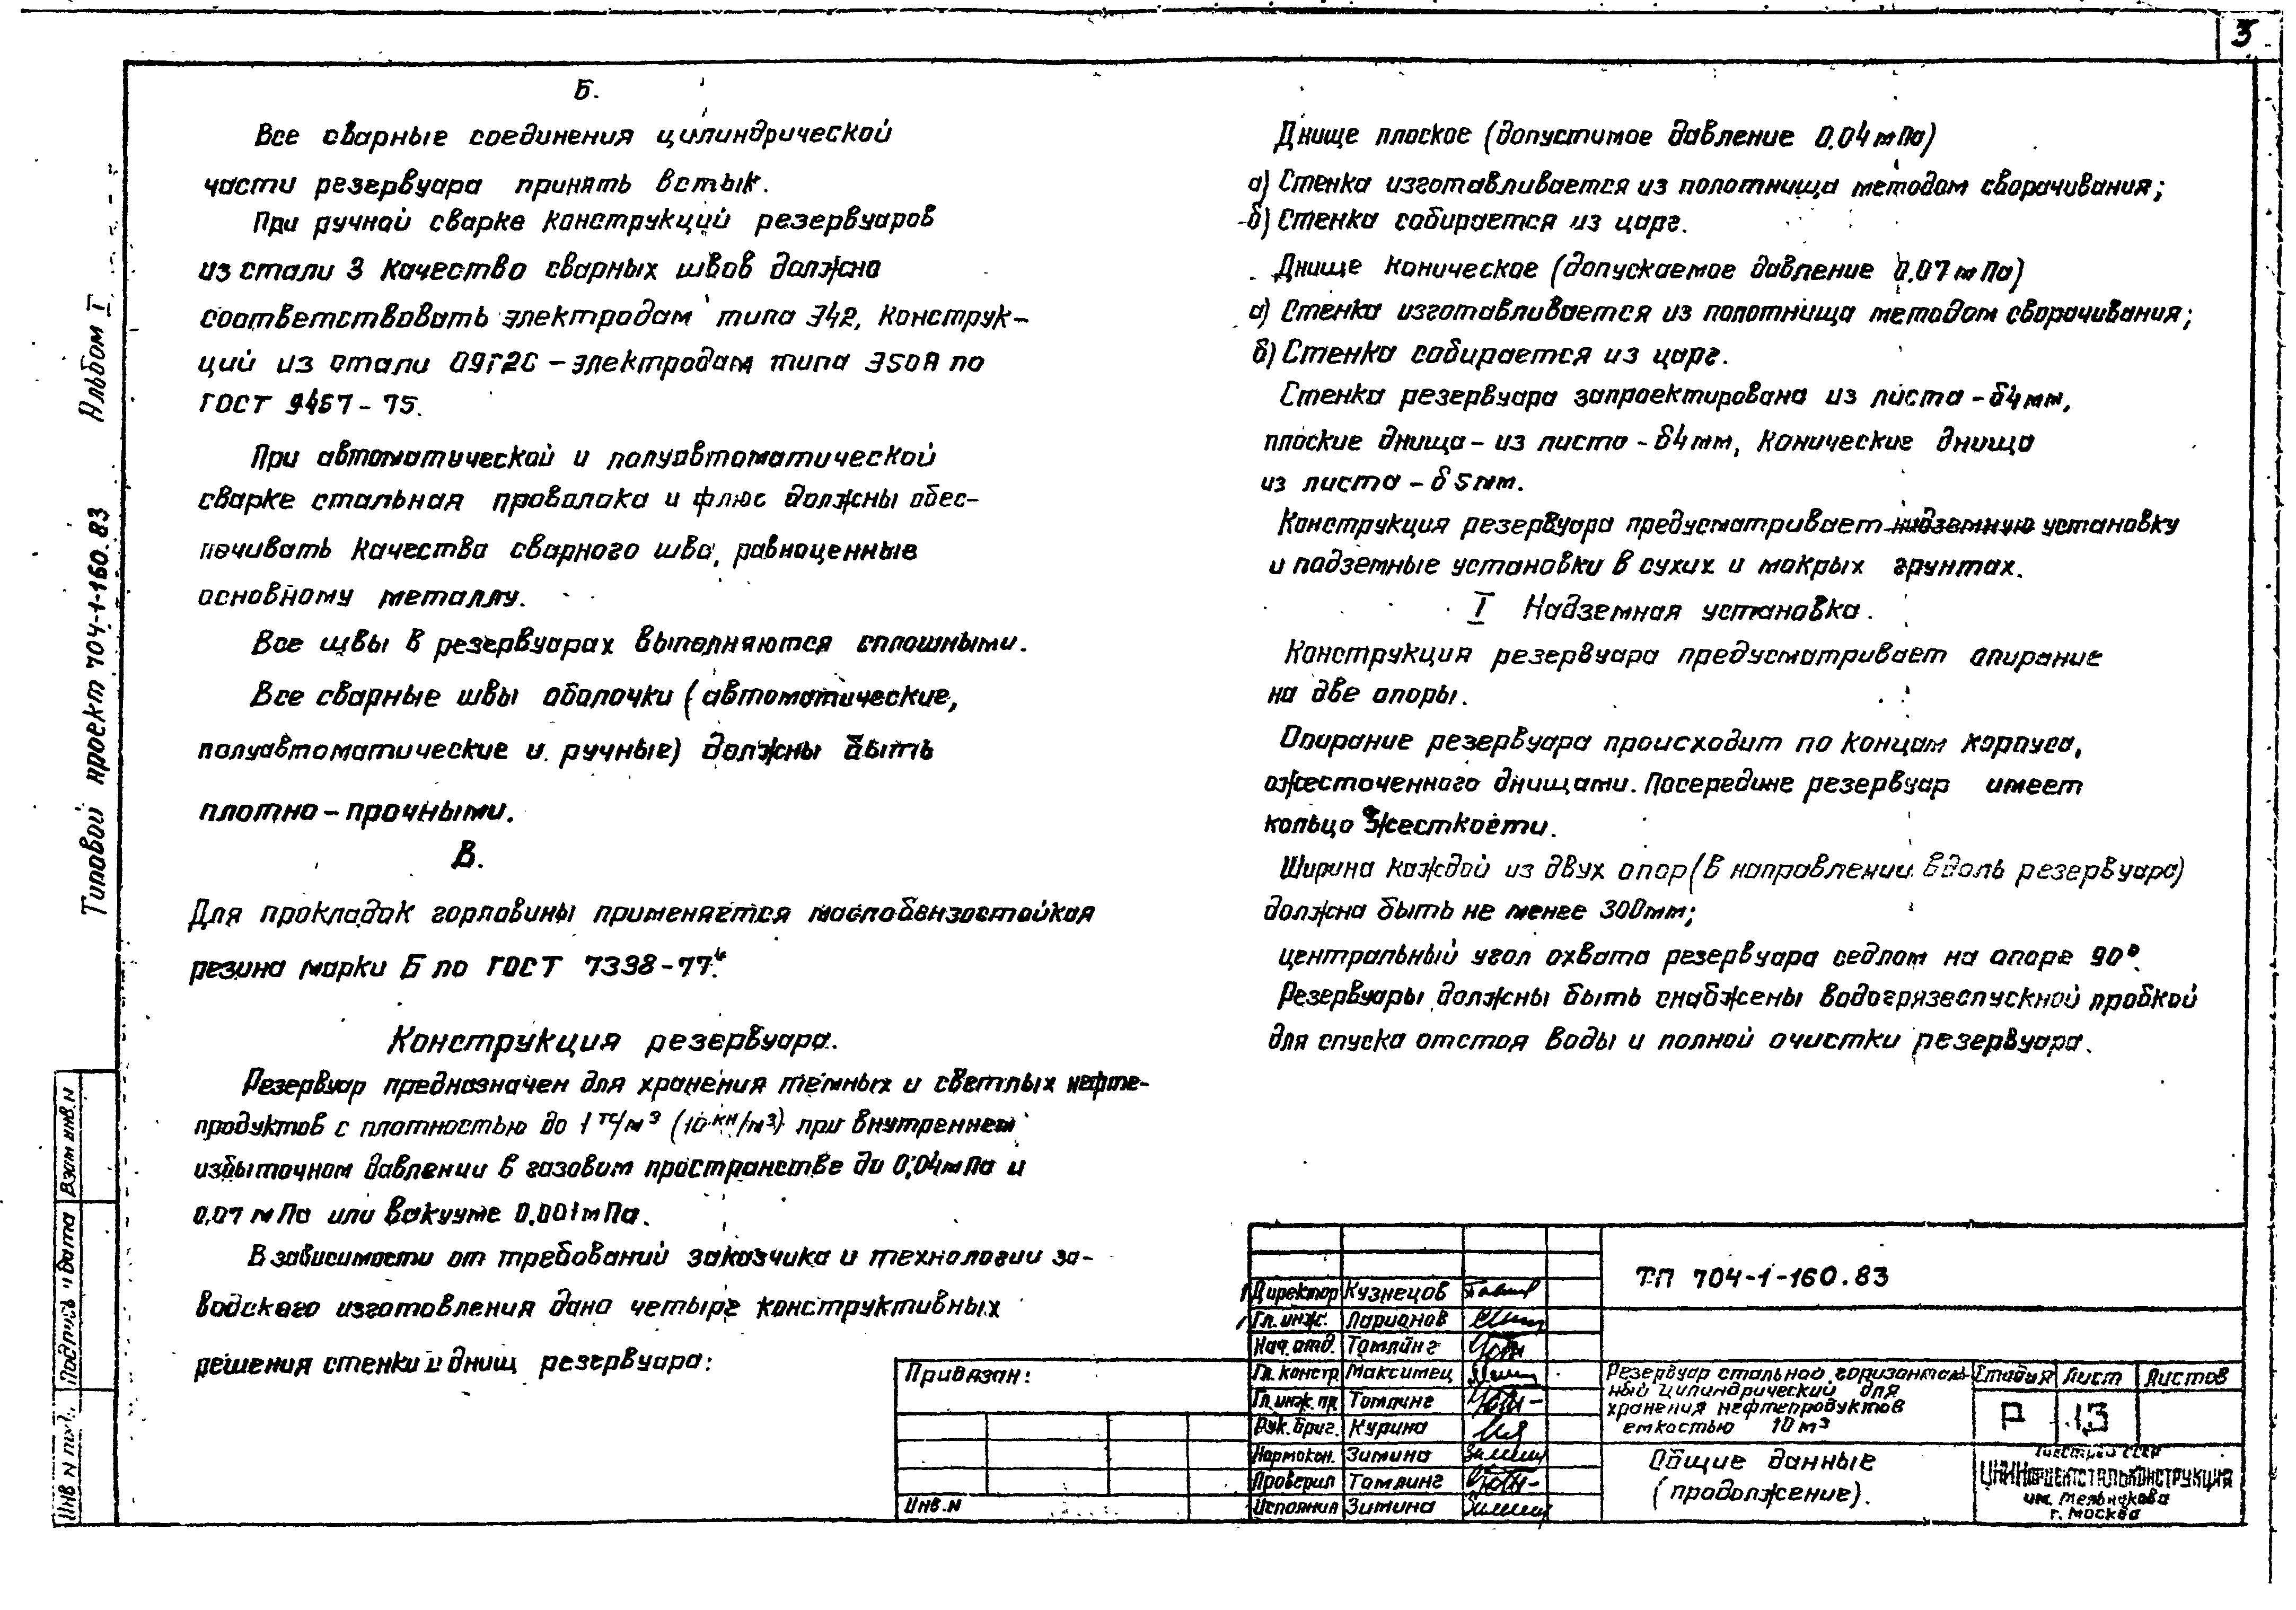 3
Б.
Все сварные соединения цилиндрической
части резервуара принять встык.
При ручной сварке конструкций резервуаров
из стали 3 качество сварных швов должно
соответствовать электродам типа Э42, конструк-
ций из стали 09Г2С – электродам типа Э50А по
ГОСТ 9467-75.
При автоматической и полуавтоматической
сварке стальная проволока и флюс должны обес-
печивать качества сварного шва, равноценные
основному металлу.
Все швы в резервуарах выполняются сплошными.
Все сварные швы оболочки (автоматические,
полуавтоматические и ручные) должны быть
плотно-прочными.
В.
Для прокладок горловины применяется маслобензостойкая
резина марки Б по ГОСТ 7338-77.
Конструкция резервуара.
Резервуар предназначен для хранения темных и светлых нефте-
продуктов с плотностью до 1 тс/м³ (10 кн/м³) при внутреннем
избыточном давлении в газовом пространстве до 0,04 мПа и
0,07 мПа или вакууме 0.001 мПа.
В зависимости от требований заказчика и технологии за-
водского изготовления дано четыре конструктивных
решения стенки и днищ резервуара:
Днище плоское (допустимое давление 0.04 мПа)
а) Стенка изготавливается из полотнища методом сворачивания;
б) Стенка собирается из царг.
Днище коническое (допускаемое давление 0.07 мПа)
а) Стенка изготавливается из полотнища методом сворачивания;
б) Стенка собирается из царг.
Стенка резервуара запроектирована из листа - δ4мм,
плоские днища - из листа - δ4мм, конические днища
из листа - δ5мм.
Конструкция резервуара предусматривает надземную установку
и подземные установки в сухих и мокрых грунтах.
I Надземная установка.
Конструкция резервуара предусматривает опирание
на две опоры.
Опирание резервуара происходит по концам корпуса,
ожесточенного днищами. Посередине резервуар имеет
кольцо жесткости.
Ширина каждой из двух опор (в направлении вдоль резервуара)
должна быть не менее 300мм;
центральный угол охвата резервуара седлом на опоре 90°.
Резервуары должны быть снабжены водогрязеспускной пробкой
для спуска отстоя воды и полной очистки резервуара.
Типовой проект 704-1-160.83 Альбом I
Взам инв. N
Подпись и дата
Инв N
Привязан:
Инв. N
Директор Кузнецов
Гл. инж. Ларионов
Нач. отд. Томлинг
Гл. констр Максимец
Гл. инж. пр Томлинг
Рук. бриг. Курина
Нормокон. Зимина
Проверил Томлинг
Исполнил Зимина
ТП 704-1-160.83
Резервуар стальной горизонталь-
ный цилиндрический для
хранения нефтепродуктов
емкостью 10 м³
Стадия Лист Листов
Р 1.3
Общие данные
(продолжение).
Госстрой СССР
ЦНИИпроектстальконструкция
им. Мельникова
г. Москва